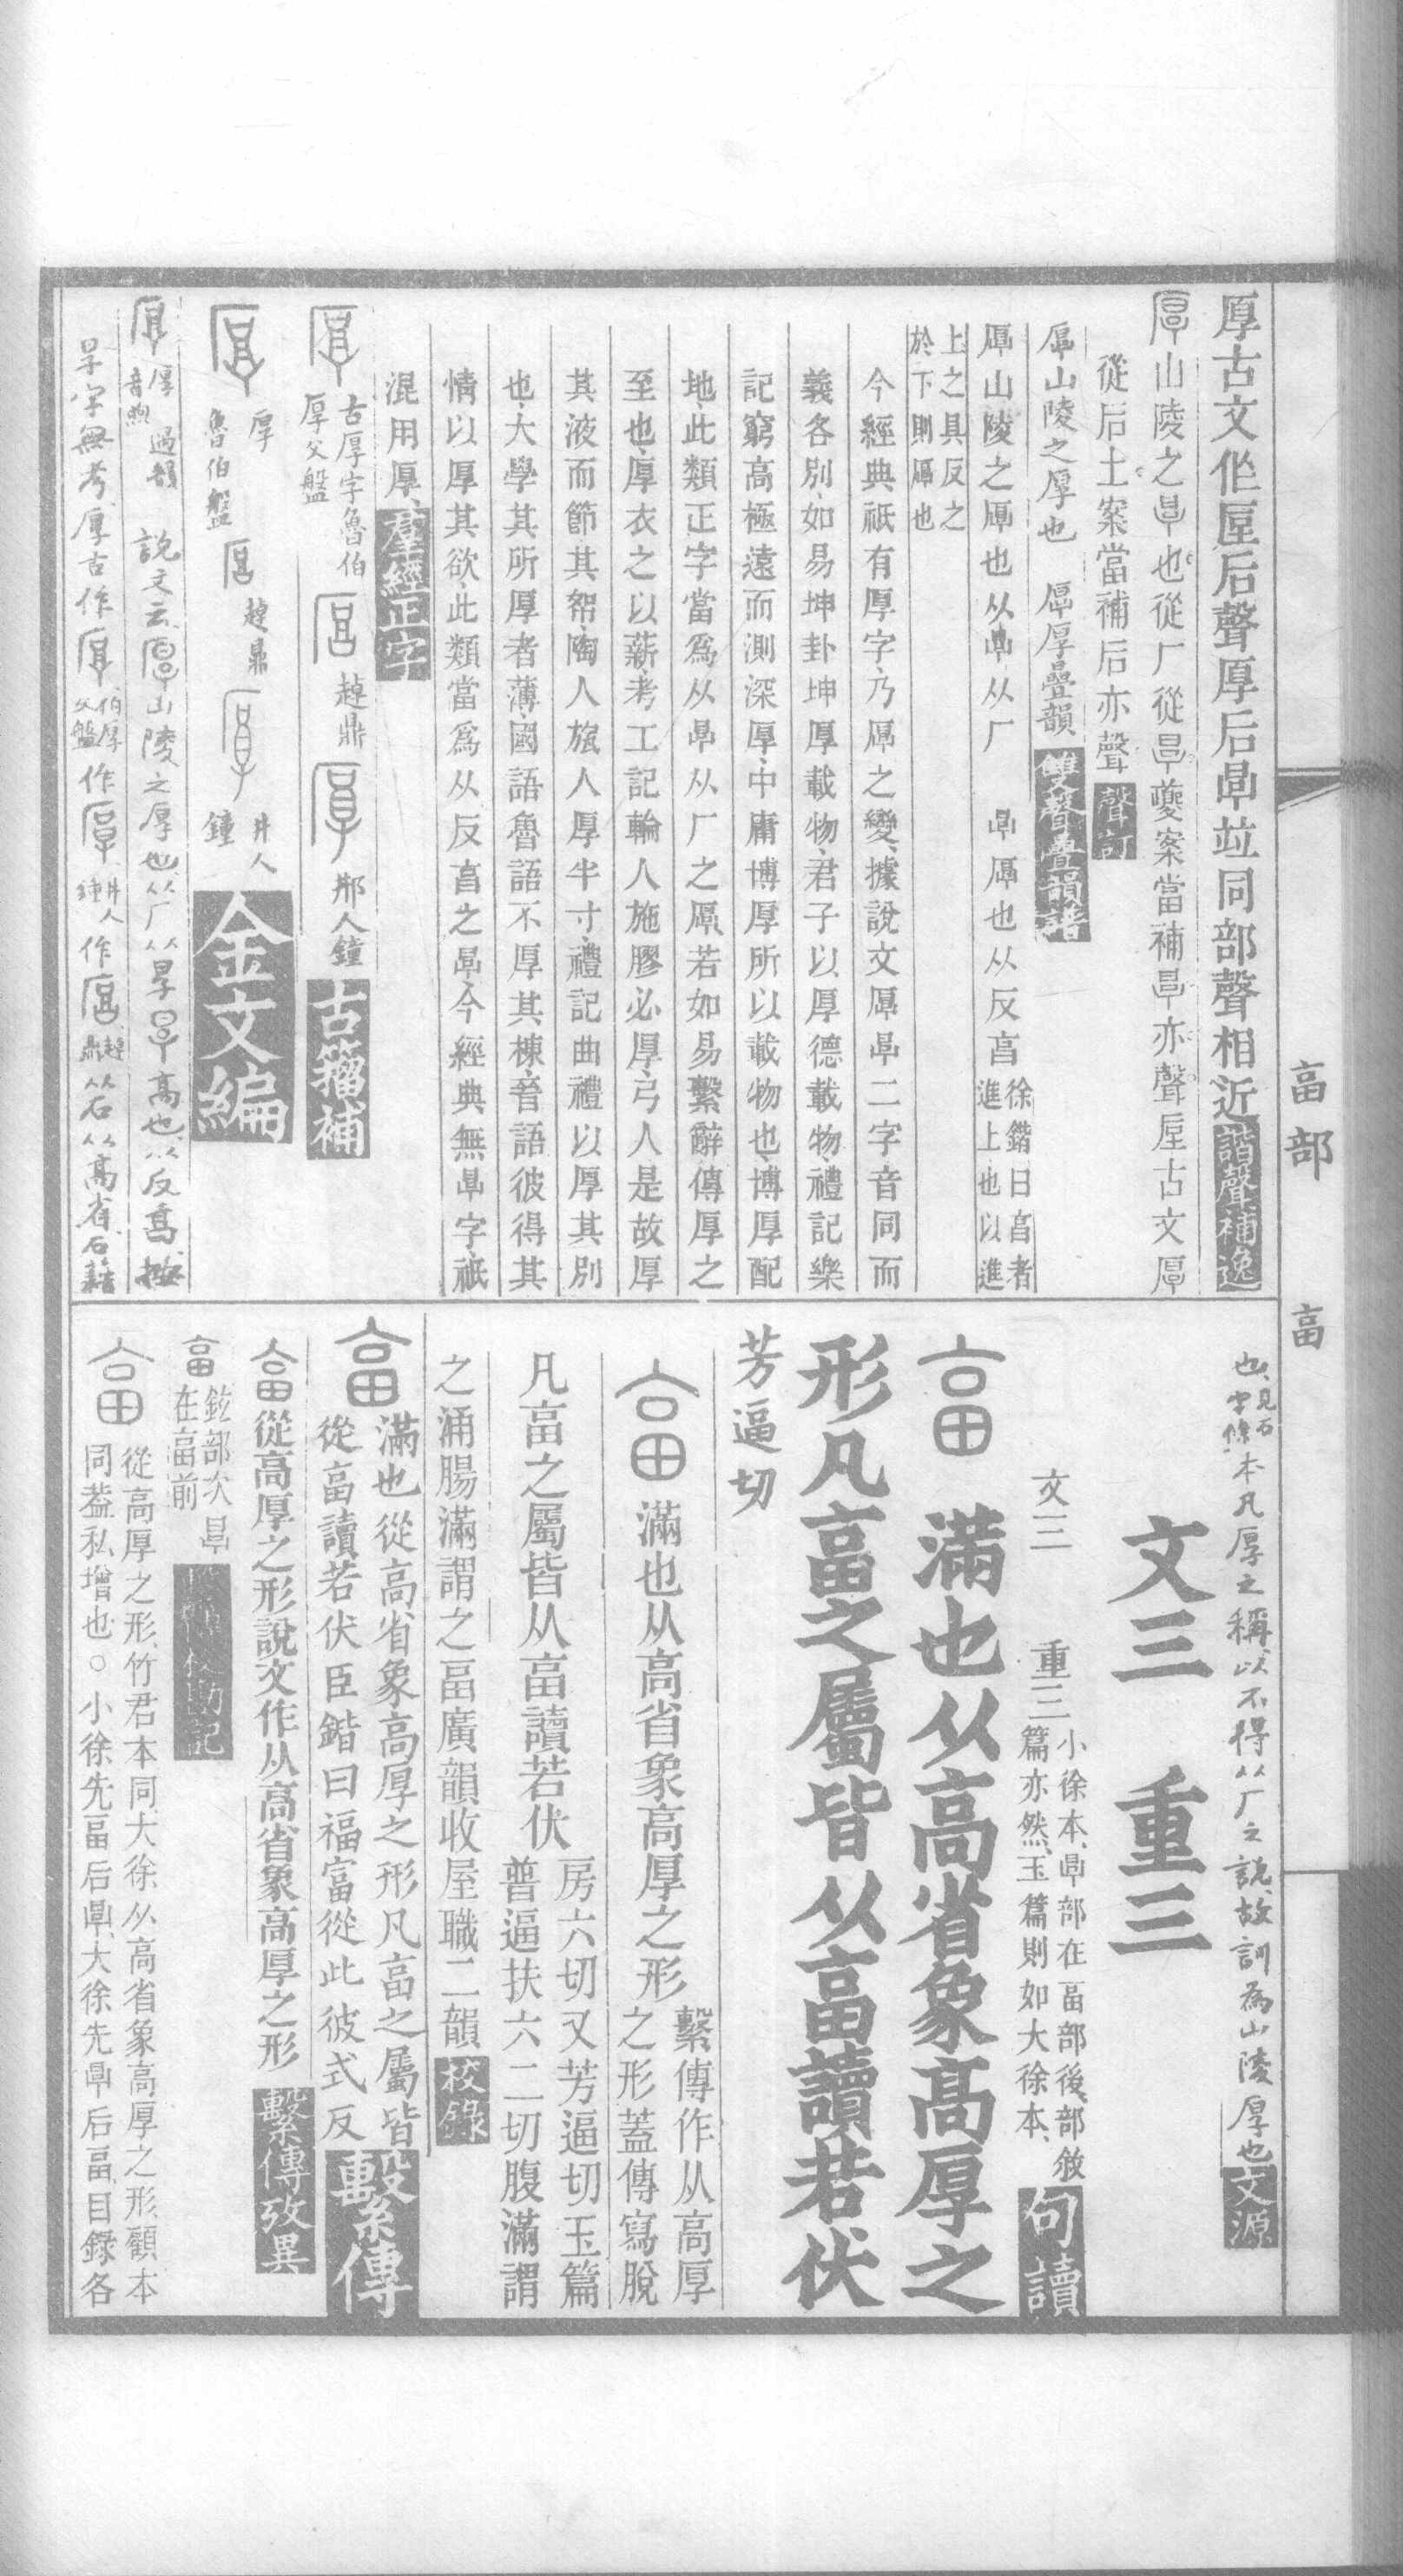 畐部
畐
厚古文作垕后聲厚后㫗竝同部聲相近諧聲補逸
山陵之㫗也從厂從㫗夔案當補㫗亦聲垕古文厚
從后土案當補后亦聲聲訂
厚山陵之厚也 厚厚疊韻雙聲疊韻譜
厚山陵之厚也从㫗从厂 㫗厚也从反亯徐鍇曰亯者進上也以進
上之具反之於下則厚也
今經典祇有厚字乃厚之變據說文厚㫗二字音同而
義各別如易坤卦坤厚載物君子以厚德載物禮記樂
記窮高極遠而測深厚中庸博厚所以載物也博厚配
地此類正字當爲从㫗从厂之厚若如易繫辭傳厚之
至也厚衣之以薪考工記輪人施膠必厚弓人是故厚
其液而節其帤陶人瓬人厚半寸禮記曲禮以厚其別
也大學其所厚者薄國語魯語不厚其棟晉語彼得其
情以厚其欲此類當爲从反亯之㫗今經典無㫗字祇
混用厚經正字
古厚字魯伯厚父盤 趠鼎 邢人鐘 古籀補
厚 魯伯盤 趠鼎 井人鐘 金文編
厚 厚音喣遇韻 說文云山陵之厚也从厂从㫗高也从反亯按
㫗字無考厚古作伯厚父盤作井人鐘作趠鼎从石从高省石籀
也見石字條本凡厚之稱以不得从厂之說故訓爲山陵厚也文源
文三 重三
文三 重三小徐本㫗部在畐部後部敘篇亦然玉篇則如大徐本句讀
滿也从高省象高厚之
形凡畐之屬皆从畐讀若伏
芳逼切
滿也从高省象高厚之形繫傳作从高厚之形蓋傳寫脫
凡畐之屬皆从畐讀若伏房六切又芳逼切玉篇普逼扶六二切腹滿謂
之涌腸滿謂之畐廣韻收屋職二韻校錄
滿也從高省象高厚之形凡畐之屬皆
從畐讀若伏臣鍇曰福富從此彼式反繫傳
畐從高厚之形說文作从高省象高厚之形繫傳攷異
畐鉉部次㫗在畐前校勘記
從高厚之形竹君本同大徐从高省象高厚之形顧本
同蓋私增也○小徐先畐后㫗大徐先㫗后畐目錄各